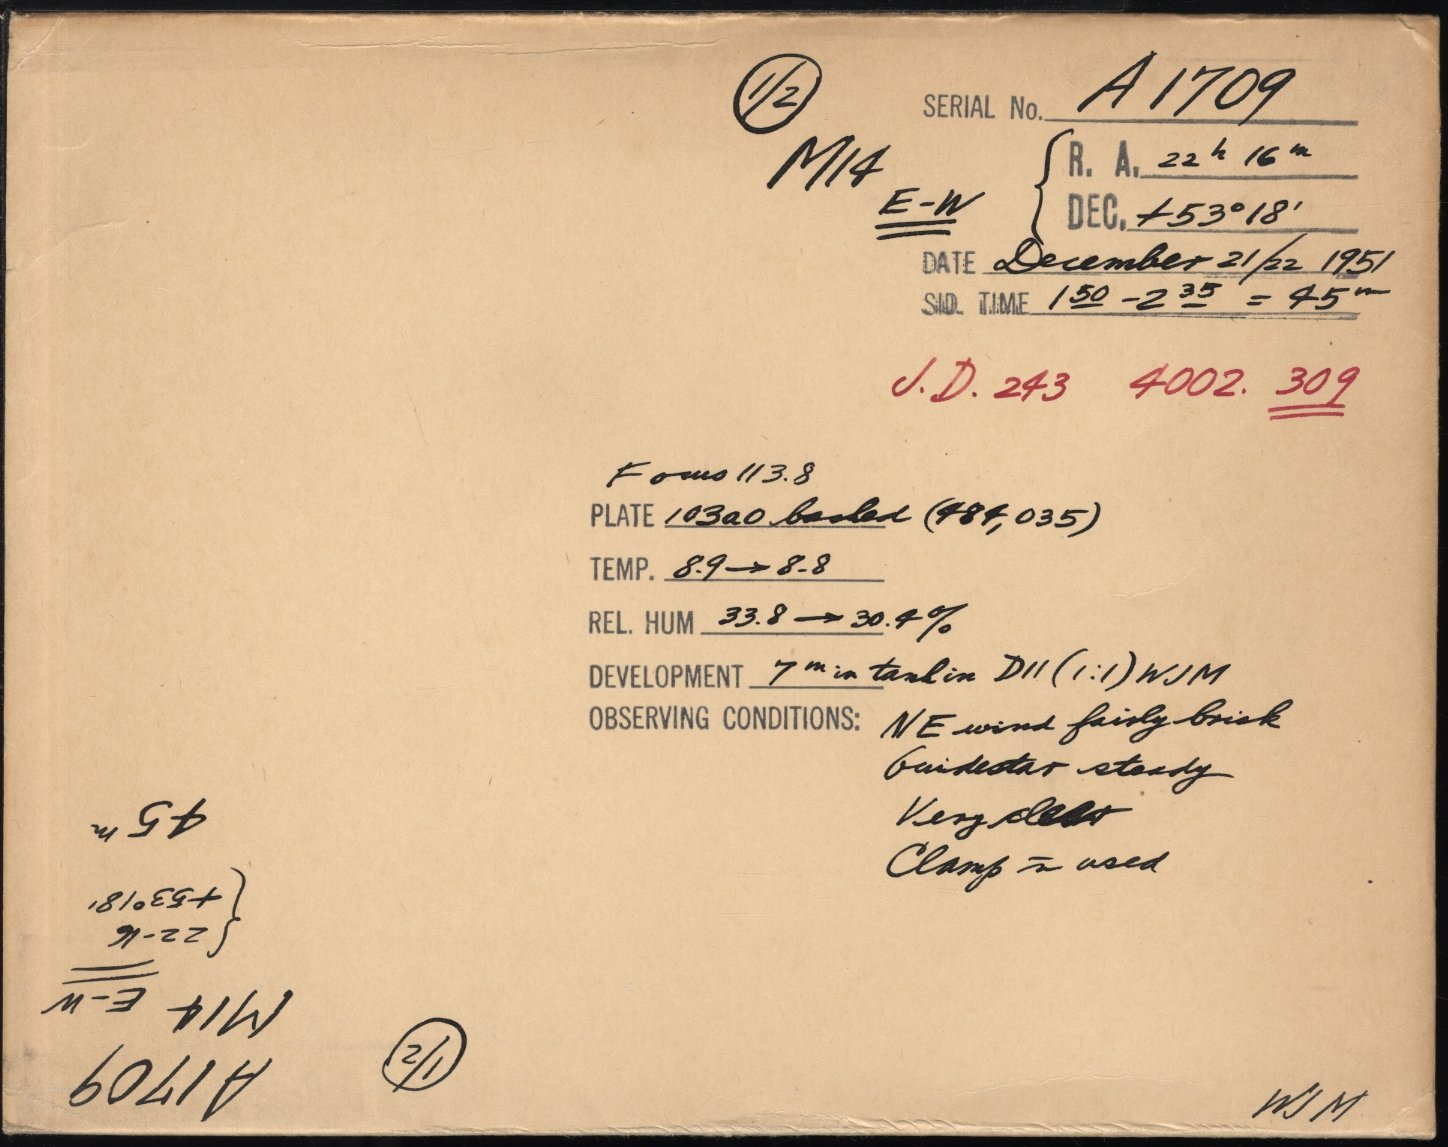 1/2
SERIAL No. A1709
M14
E-W
R. A. 22h 16m
DEC. +53°18'
DATE December 21/22 1951
SID. TIME 1 50 - 2 35 = 45m
J.D. 243 4002. 309
Focus 113.8
PLATE 103aO baked (484,035)
TEMP. 8.9 → 8.8
REL. HUM 33.8 → 30.4%
DEVELOPMENT 7m in tank in D11 (1:1) WJM
OBSERVING CONDITIONS: NE wind fairly brisk
Guidestar steady
Very clear
Clamp = used
A1709
M14 E-W
22-16
+53°18'
45m
1/2
WJM